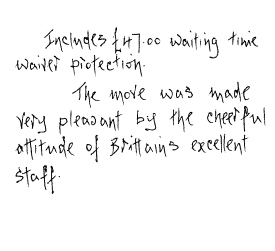 Includes £47.00 waiting time
waiver protection.
The move was made
very pleasant by the cheerful
attitude of Brittains excellent
staff.